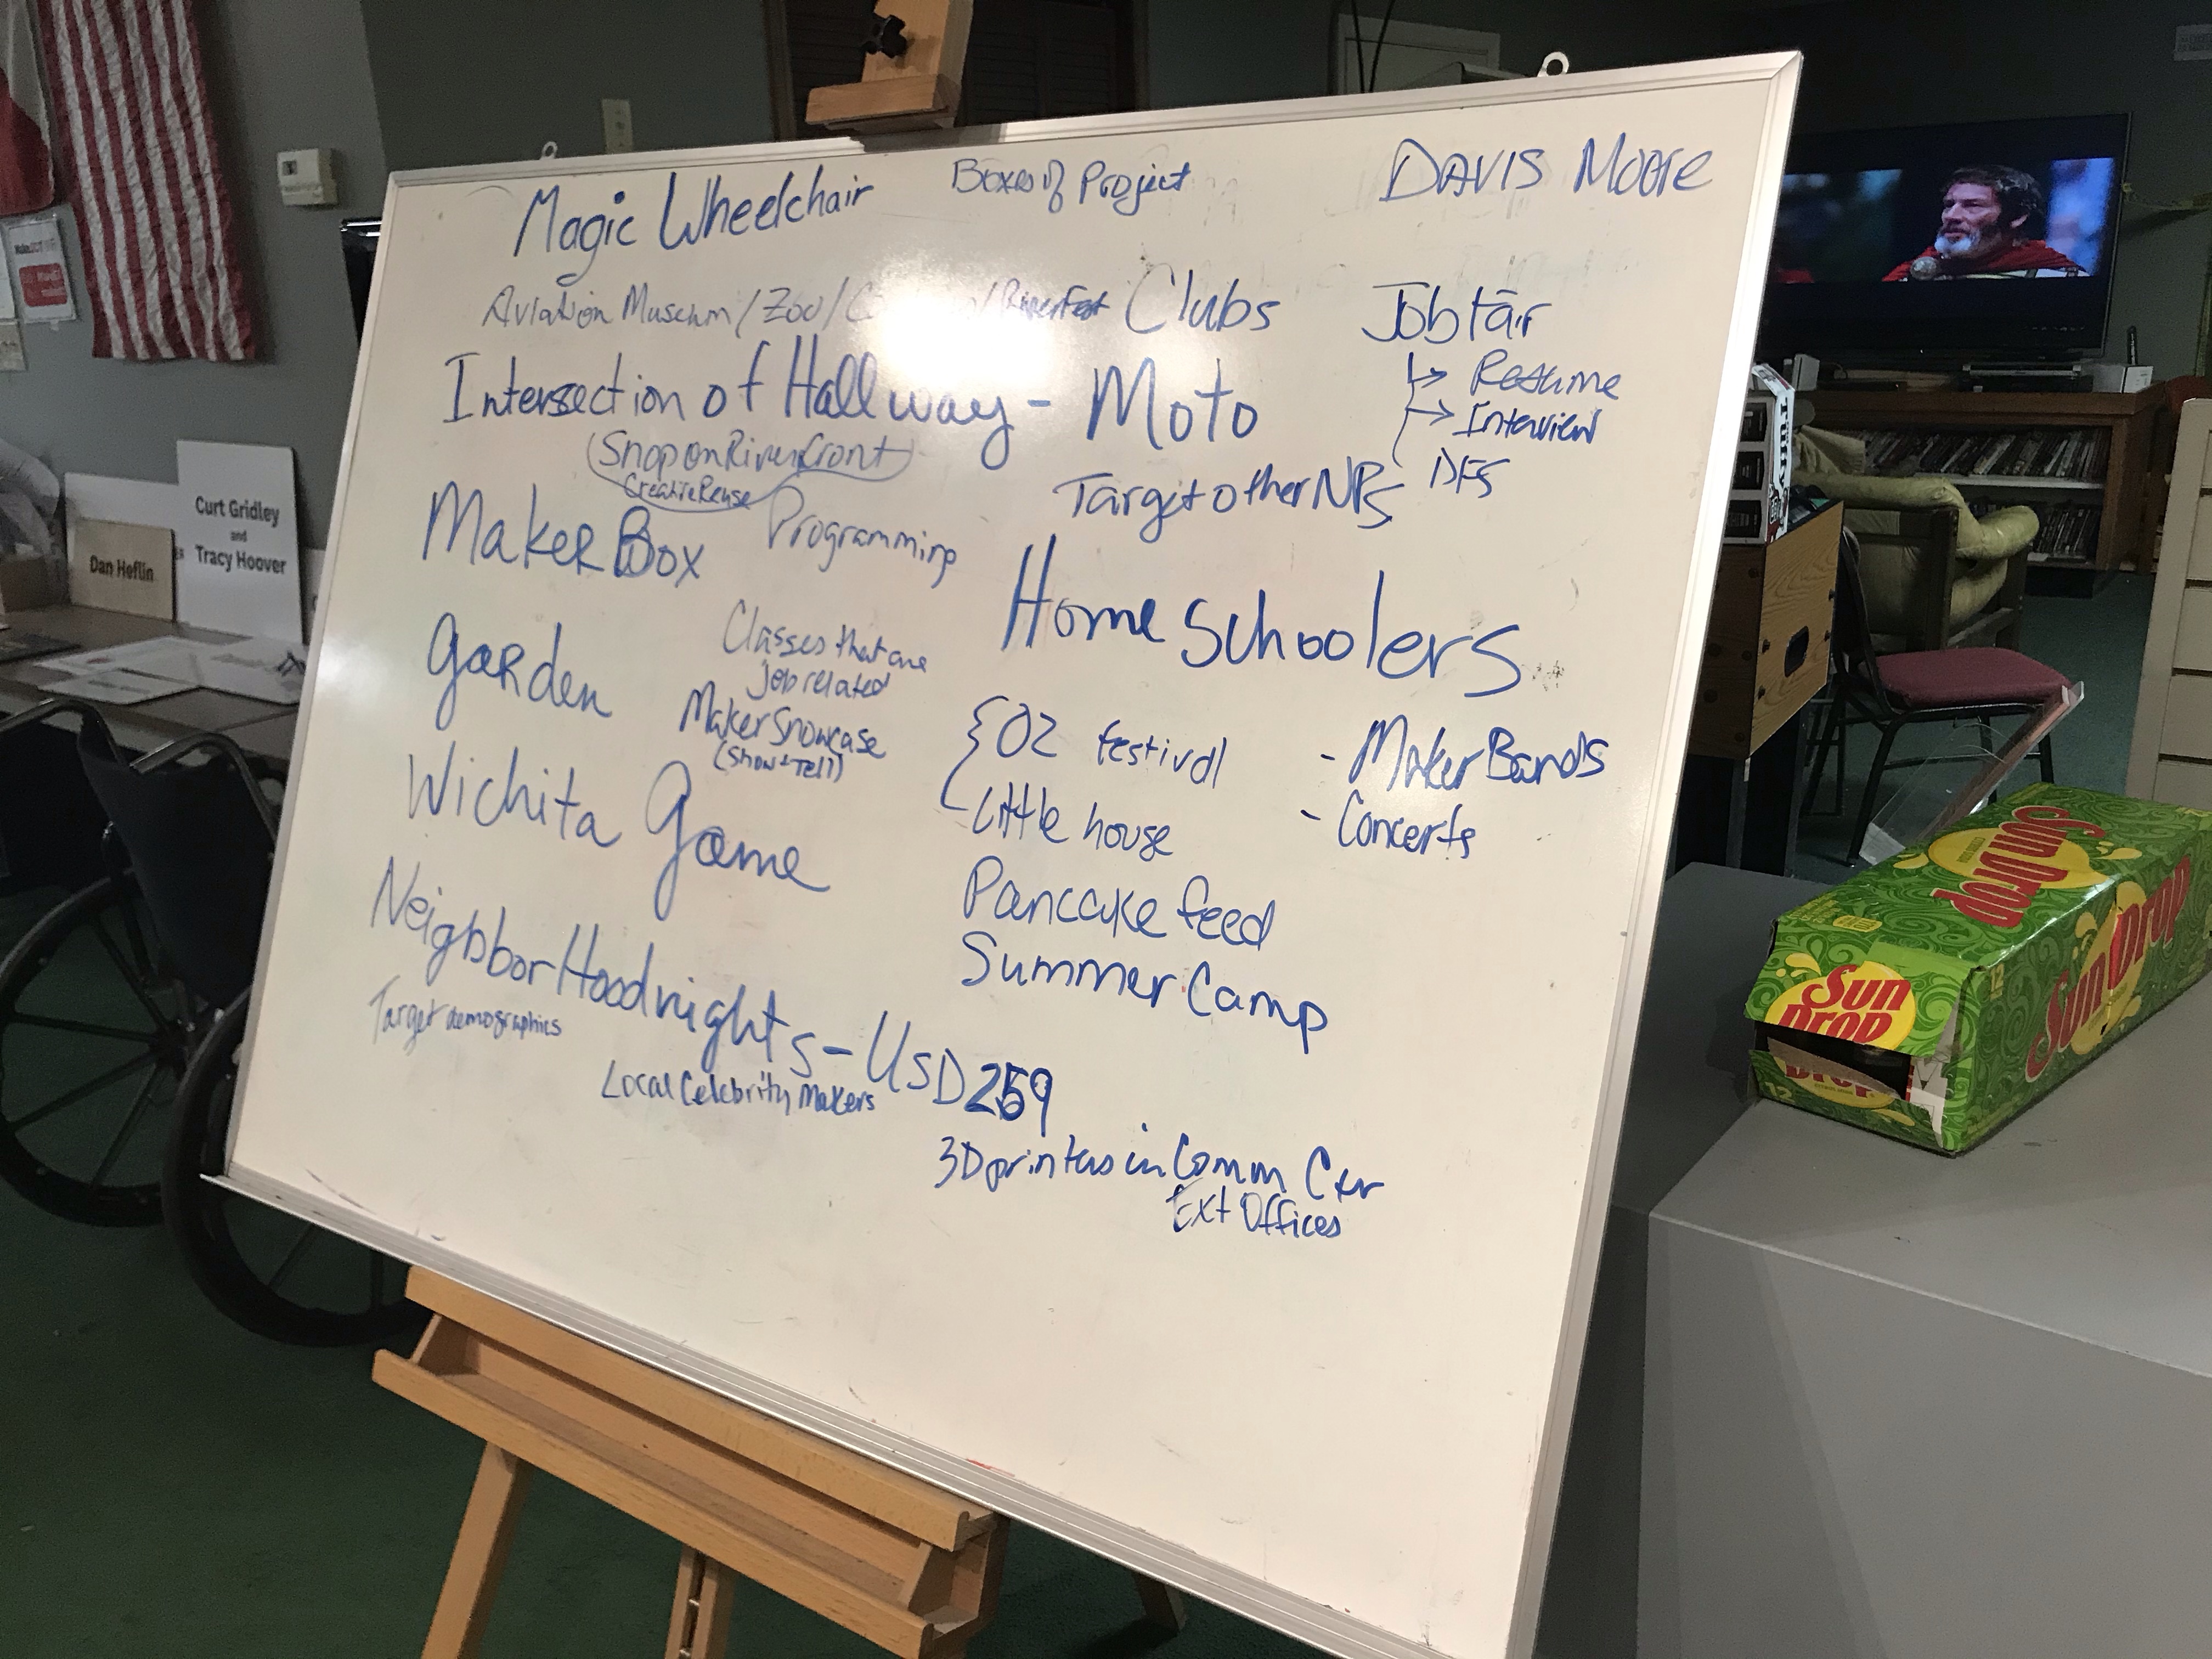 Magic Wheelchair
Boxes of Project
DAVIS MOORE
Aviation Museum / Zoo / / Riverfest
Clubs
Job fair
Resume
Interview
DFS
Intersection of Hallway - Moto
Shop on Riverfront
Creative Reuse
Target other NPs
MakerBox
Programming
Home Schoolers
garden
Classes that are
job related
Maker Showcase
(Show + Tell)
OZ festival
Little house
- Maker Bands
- Concerts
Wichita Game
Pancake feed
Summer Camp
NeighborHood nights - USD 259
Target demographics
Local Celebrity Makers
3D printers in Comm Ctr
Ext Offices
Curt Gridley
and
Tracy Hoover
Dan Heflin
Sun Drop
Sun Drop
Sun
Drop
Drop
12
12